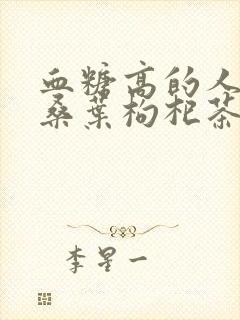 血糖高的人
桑葉枸杞茶
李星一